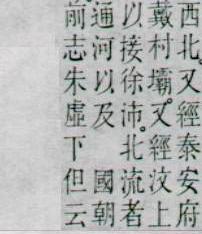 西北。又經泰安府
戴村壩。又經汶上
以接徐沛。北流者
通河以及 國朝
前志朱虛下但云